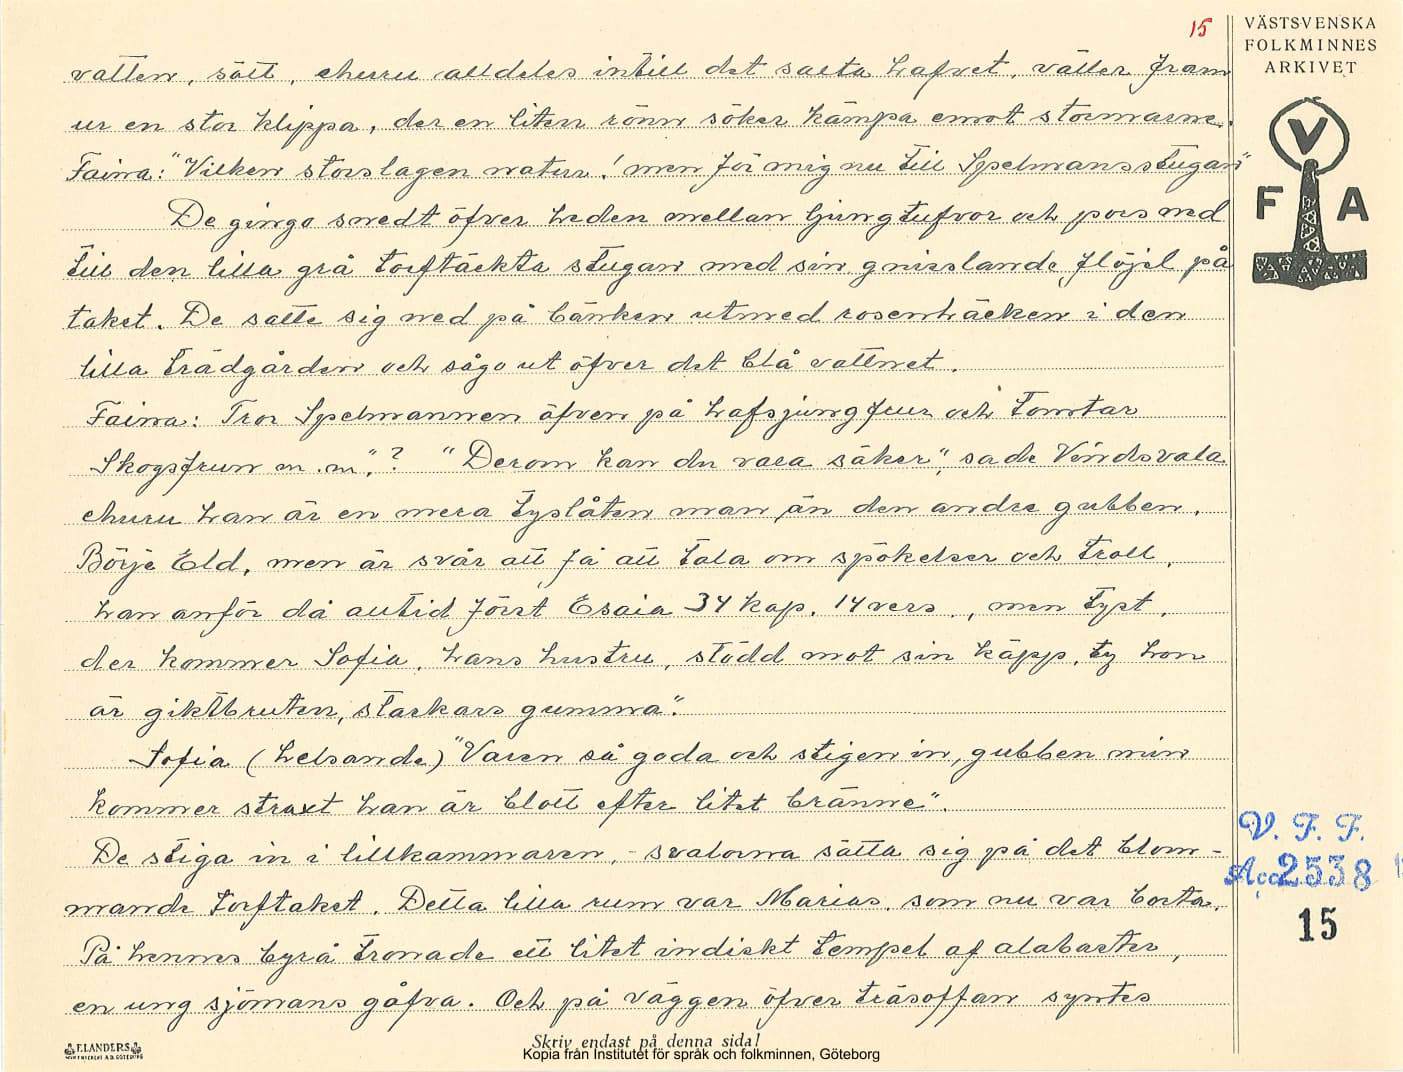 15
VÄSTSVENSKA
FOLKMINNES
ARKIVET
V
F A
vatten, sött, ehuru alldeles intill det salta hafvet, väller fram
ur en stor klippa, der en liten rönn söker kämpa emot stormarne.
Faina: "Vilken storslagen natur! men för mig nu till Spelmansstugan"
De gingo snedt öfver heden mellan ljungtufvor och pors ned
till den lilla grå torftäckta stugan med sin gnisslande flöjel på
taket. De satte sig ned på bänken utmed rosenhäcken i den
lilla trädgården och sågo ut öfver det blå vattnet.
Faina: Tror Spelmannen äfven på hafsjungfrur och Tomtar
Skogsfrun m.m."? "Derom kan du vara säker", sade Vindsvala
ehuru han är en mera tyslåten man än den andre gubben,
Börje Eld, men är svår att få att tala om spökelser och troll,
han anför då alltid först Esaia 34 kap. 14 vers., men tyst,
der kommer Sofia, hans hustru, stödd mot sin käpp, ty hon
är giktbruten, stackars gumma".
Sofia (helsande) "Varen så goda och stigen in, gubben min
kommer straxt han är blott efter litet bränne".
De stiga in i lillkammaren, - svalorna sätta sig på det blom-
mande torftaket. Detta lilla rum var Marias, som nu var borta.
På hennes byrå tronade ett litet indiskt tempel af alabaster,
en ung sjömans gåfva. Och på väggen öfver träsoffan syntes
V. F. F.
Acc 2538
15
E LANDERS
Skriv endast på denna sida!
Kopia från Institutet för språk och folkminnen, Göteborg